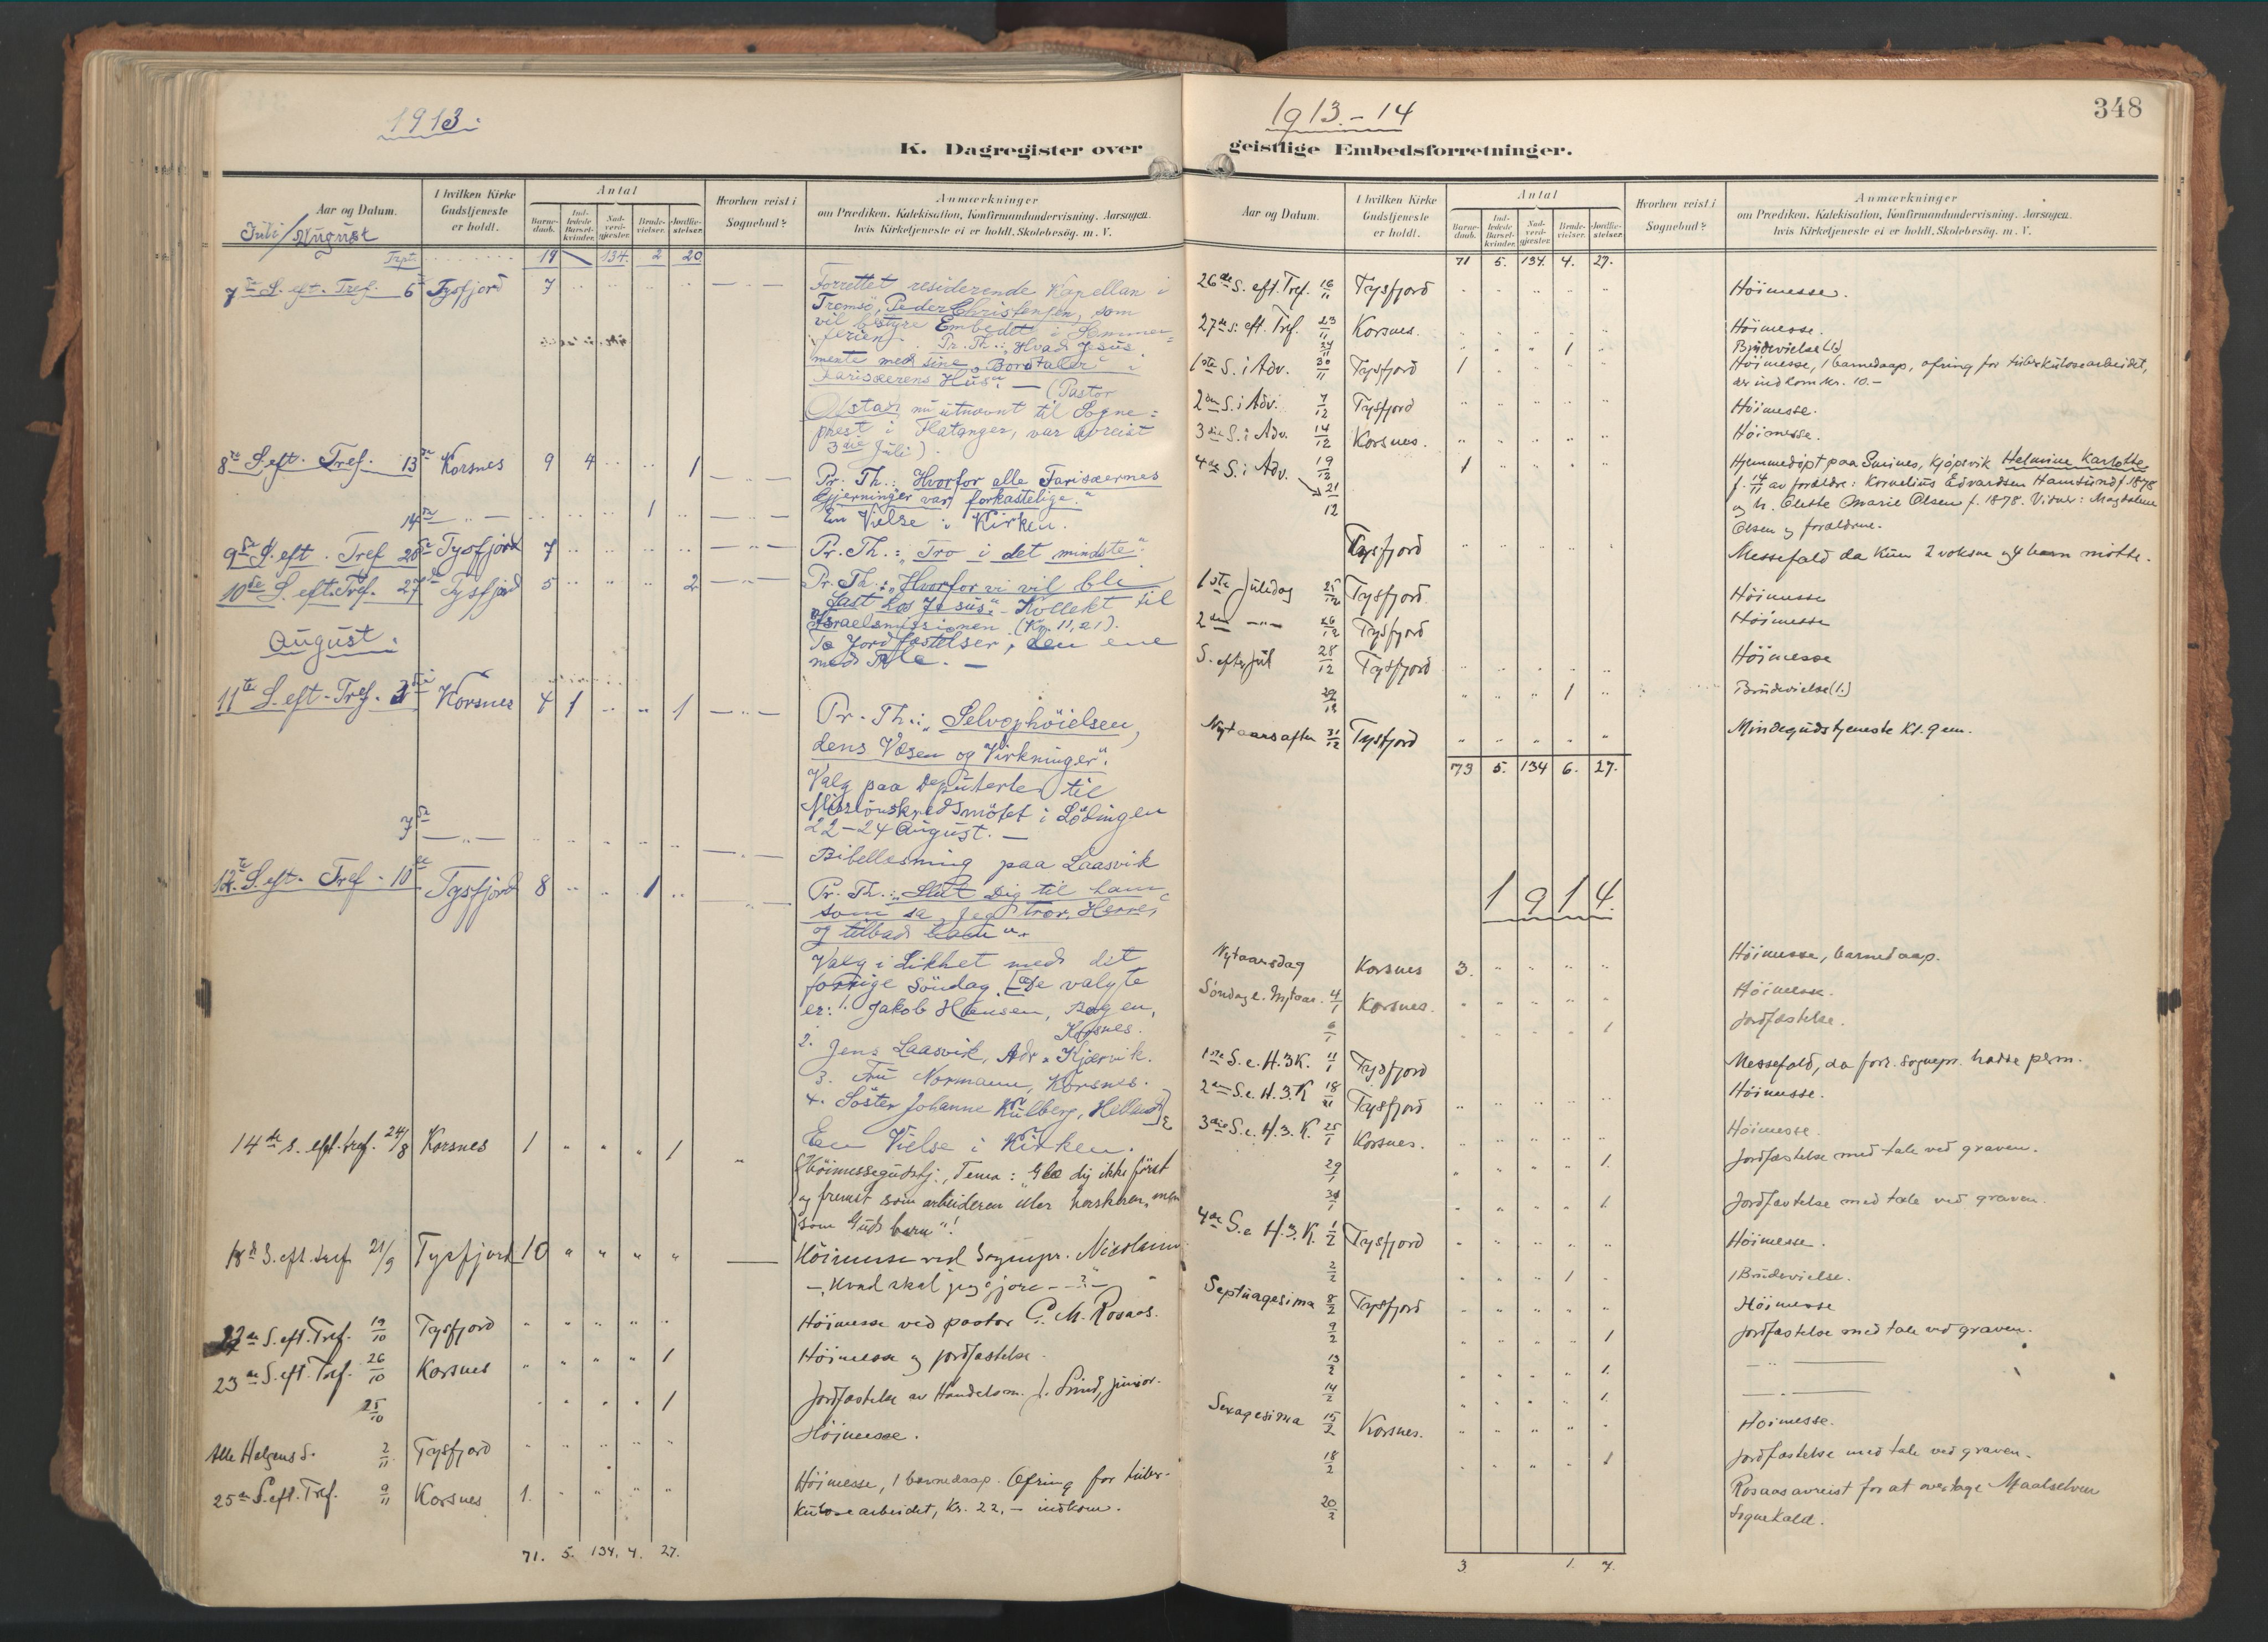 1913.
K. Dagregister over
Aar og Datum.
I hvilken Kirke Gudstjeneste er holdt.
Antal
Barne-daab.
Ind-ledede Barsel-kvinder.
Nad-verd-gjæster.
Brude-vielser.
Jordfæ-stelser.
Hvorhen reist i Sognebud?
Anmærkninger
om Prædiken. Katekisation, Konfirmandundervisning. Aarsagen,
hvis Kirketjeneste ei er holdt. Skolebesög. m. V.
Juli/August
Trpt. 19 134. 2 20
7de S. eft. Tref. 6te Tysfjord 7 Forrettet residerende Kapellan i
Tromsö, Peder Christensen, som
vil bestyre Embedet i Sommer=
ferien. Pr. Th.: "Hvad Jesus
mente med sine "Bordtaler" i
Farisæerens Hus". — (Pastor
Alstad nu utnævnt til Sogne=
prest i Flatanger, var avreist
3die Juli).
8de S. eft. Tref. 13de Korsnes 9 4 1 Pr. Th.: "Hvorfor alle Farisæernes
Gjerninger var forkastelige."
14de 1 En Vielse i Kirken.
9de S. eft. Tref 20de Tysfjord 7 Pr. Th.: "Tro i det mindste".
10de S. eft. Tref. 27de Tysfjord 5 2 Pr. Th.: "Hvorfor vi vil bli
fast hos Jesus". Kollekt til
Israelsmissionen (Kr. 11,21).
To Jordfæstelser, den ene
med Tale. —
August.
11te S. eft. Tref. 3die Korsnes 4 1 1 Pr. Th.: "Selvophöielsen,
dens Væsen og Virkninger".
Valg paa Deputerte til
Missionskredsmötet i Lödingen
22–24 August. —
7de Bibellæsning paa Laasvik
12te S. eft. Tref. 10de Tysfjord 8 1 Pr. Th.: "Slut Dig til ham
som sa, Jeg tror, Herre,
og tilbad ham".
Valg i Likhet med det
forrige Söndag. [De valgte
er: 1. Jakob Hansen, Bogen,
Korsnes.
2. Jens Laasvik, Adr. Kjærvik.
3. Fru Normann, Korsnes.
4. Söster Johanne Kulberg,
En Vielse i Kirken.
14de s. eft. tref. 24/8 Korsnes 1 1 Höimessegudstj., Tema: "Glæ dig ikke först
og fremst som arbeideren eller herskeren, men
som Guds barn"!
18de S. eft. tref 21/9 Tysfjord 10 Höimesse ved Sognepr. Nicolaisen
– "Hvad skal jeg gjøre – – ?" –
22de S. eft. Tref. 19/10 Tysfjord Höimesse ved pastor C. M. Rosaas.
23de S. eft. Tref. 26/10 Korsnes 1 Höimesse og jordfæstelse.
25/10 1 Jordfæstelse av Handelsm. J. junior.
Alle Helgens S. 2/11 Tysfjord Höimesse.
25de S. eft. Tref. 9/11 Korsnes 1. Höimesse, 1 barnedaap. Ofring for tuber-
kulosearbeidet, kr. 22,– indkom.
71. 5. 134. 4. 27.
1913.–14
348
geistlige Embedsforretninger.
Aar og Datum.
I hvilken Kirke Gudstjeneste er holdt.
Antal
Barne-daab.
Ind-ledede Barsel-kvinder.
Nad-verd-gjæster.
Brude-vielser.
Jordfæ-stelser.
Hvorhen reist i Sognebud?
Anmærkninger
om Prædiken. Katekisation, Konfirmandundervisning. Aarsagen,
hvis Kirketjeneste ei er holdt. Skolebesög. m. V.
71 5. 134. 4. 27.
26de S. eft. Tref. 16/11 Tysfjord Höimesse.
27de S. eft. Tref. 23/11 Korsnes. Höimesse.
24/11 1 Brudevielse (1)
1ste S. i Adv. 30/11 Tysfjord 1 Höimesse, 1 barnedaap, ofring for tuberkulosearbeidet,
der indkom kr. 10.–
2den S. i Adv. 7/12 Tysfjord Höimesse.
3die S. i Adv. 14/12 Korsnes. Höimesse.
4de S. i Adv. 19/12 1 Hjemmedöpt paa Smines, Kjöpsvik Helmine Karlotte
f. 14/11 av forældre: Kornelius Edvardsen Hamsund f. 1878
og h. Olette Marie Olsen f. 1878. Vidner: Magdalene
Olsen og forældrene.
21/12 Tysfjord Messefald da kun 2 voksne og 4 barn mötte.
1ste Juledag 25/12 Tysfjord Höimesse
2den —"— 26/12 Tysfjord Höimesse
S. efter jul 28/12 Tysfjord Höimesse
29/12 1 Brudevielse (1.)
Nytaarsaften 31/12 Tysfjord Mindegudstjeneste Kl. 9 em.
73 5. 134 6. 27.
1914.
Nytaarsdag Korsnes 3. Höimesse, barnedaap.
Söndag e. Nytaar. 4/1 Korsnes. Höimesse.
6/1 1 Jordfæstelse.
1ste S. e. H. 3 K. 11/1 Tysfjord Messefald, da forr. sognepr. hadde perm.
2den S. e. H. 3. K 18/1 Tysfjord Höimesse.
3die S. e. H. 3. K. 25/1 Korsnes. Höimesse.
29/1 1. Jordfæstelse med tale ved graven.
31/1 1 Jordfæstelse med tale ved graven.
4de S. e H. 3. K. 1/2 Tysfjord Höimesse.
2/2 1 1 Brudevielse.
Septuagesima 8/2 Tysfjord Höimesse
9/2 1 Jordfæstelse med tale ved graven.
13/2 1. — " —
14/2 1. — " —
Sexagesima 15/2 Korsnes. Höimesse.
18/2 1 Jordfæstelse med tale ved graven.
20/2 Rosaas avreist for at overtage Maalselven
Sognekald.
3. 1. 7.